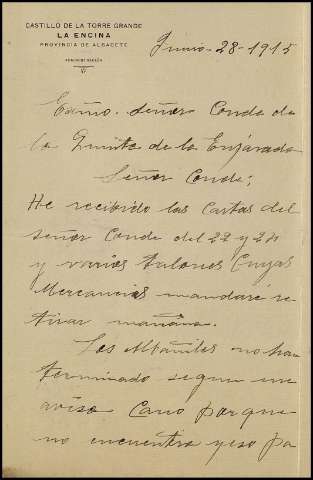 CASTILLO DE LA TORRE GRANDE
LA ENCINA
PROVINCIA DE ALBACETE
Junio-28-1915
Exmo. Señor Conde de
la Quinta de la Enjarada
Señor Conde;
He recibido las Cartas del
señor Conde del 22 y 24
y varios talones Cuyas
Mercancias mandaré re
tirar mañana.
Los Albañiles no han
terminado segun me
avisa Cano porque
no encuentra yeso pa